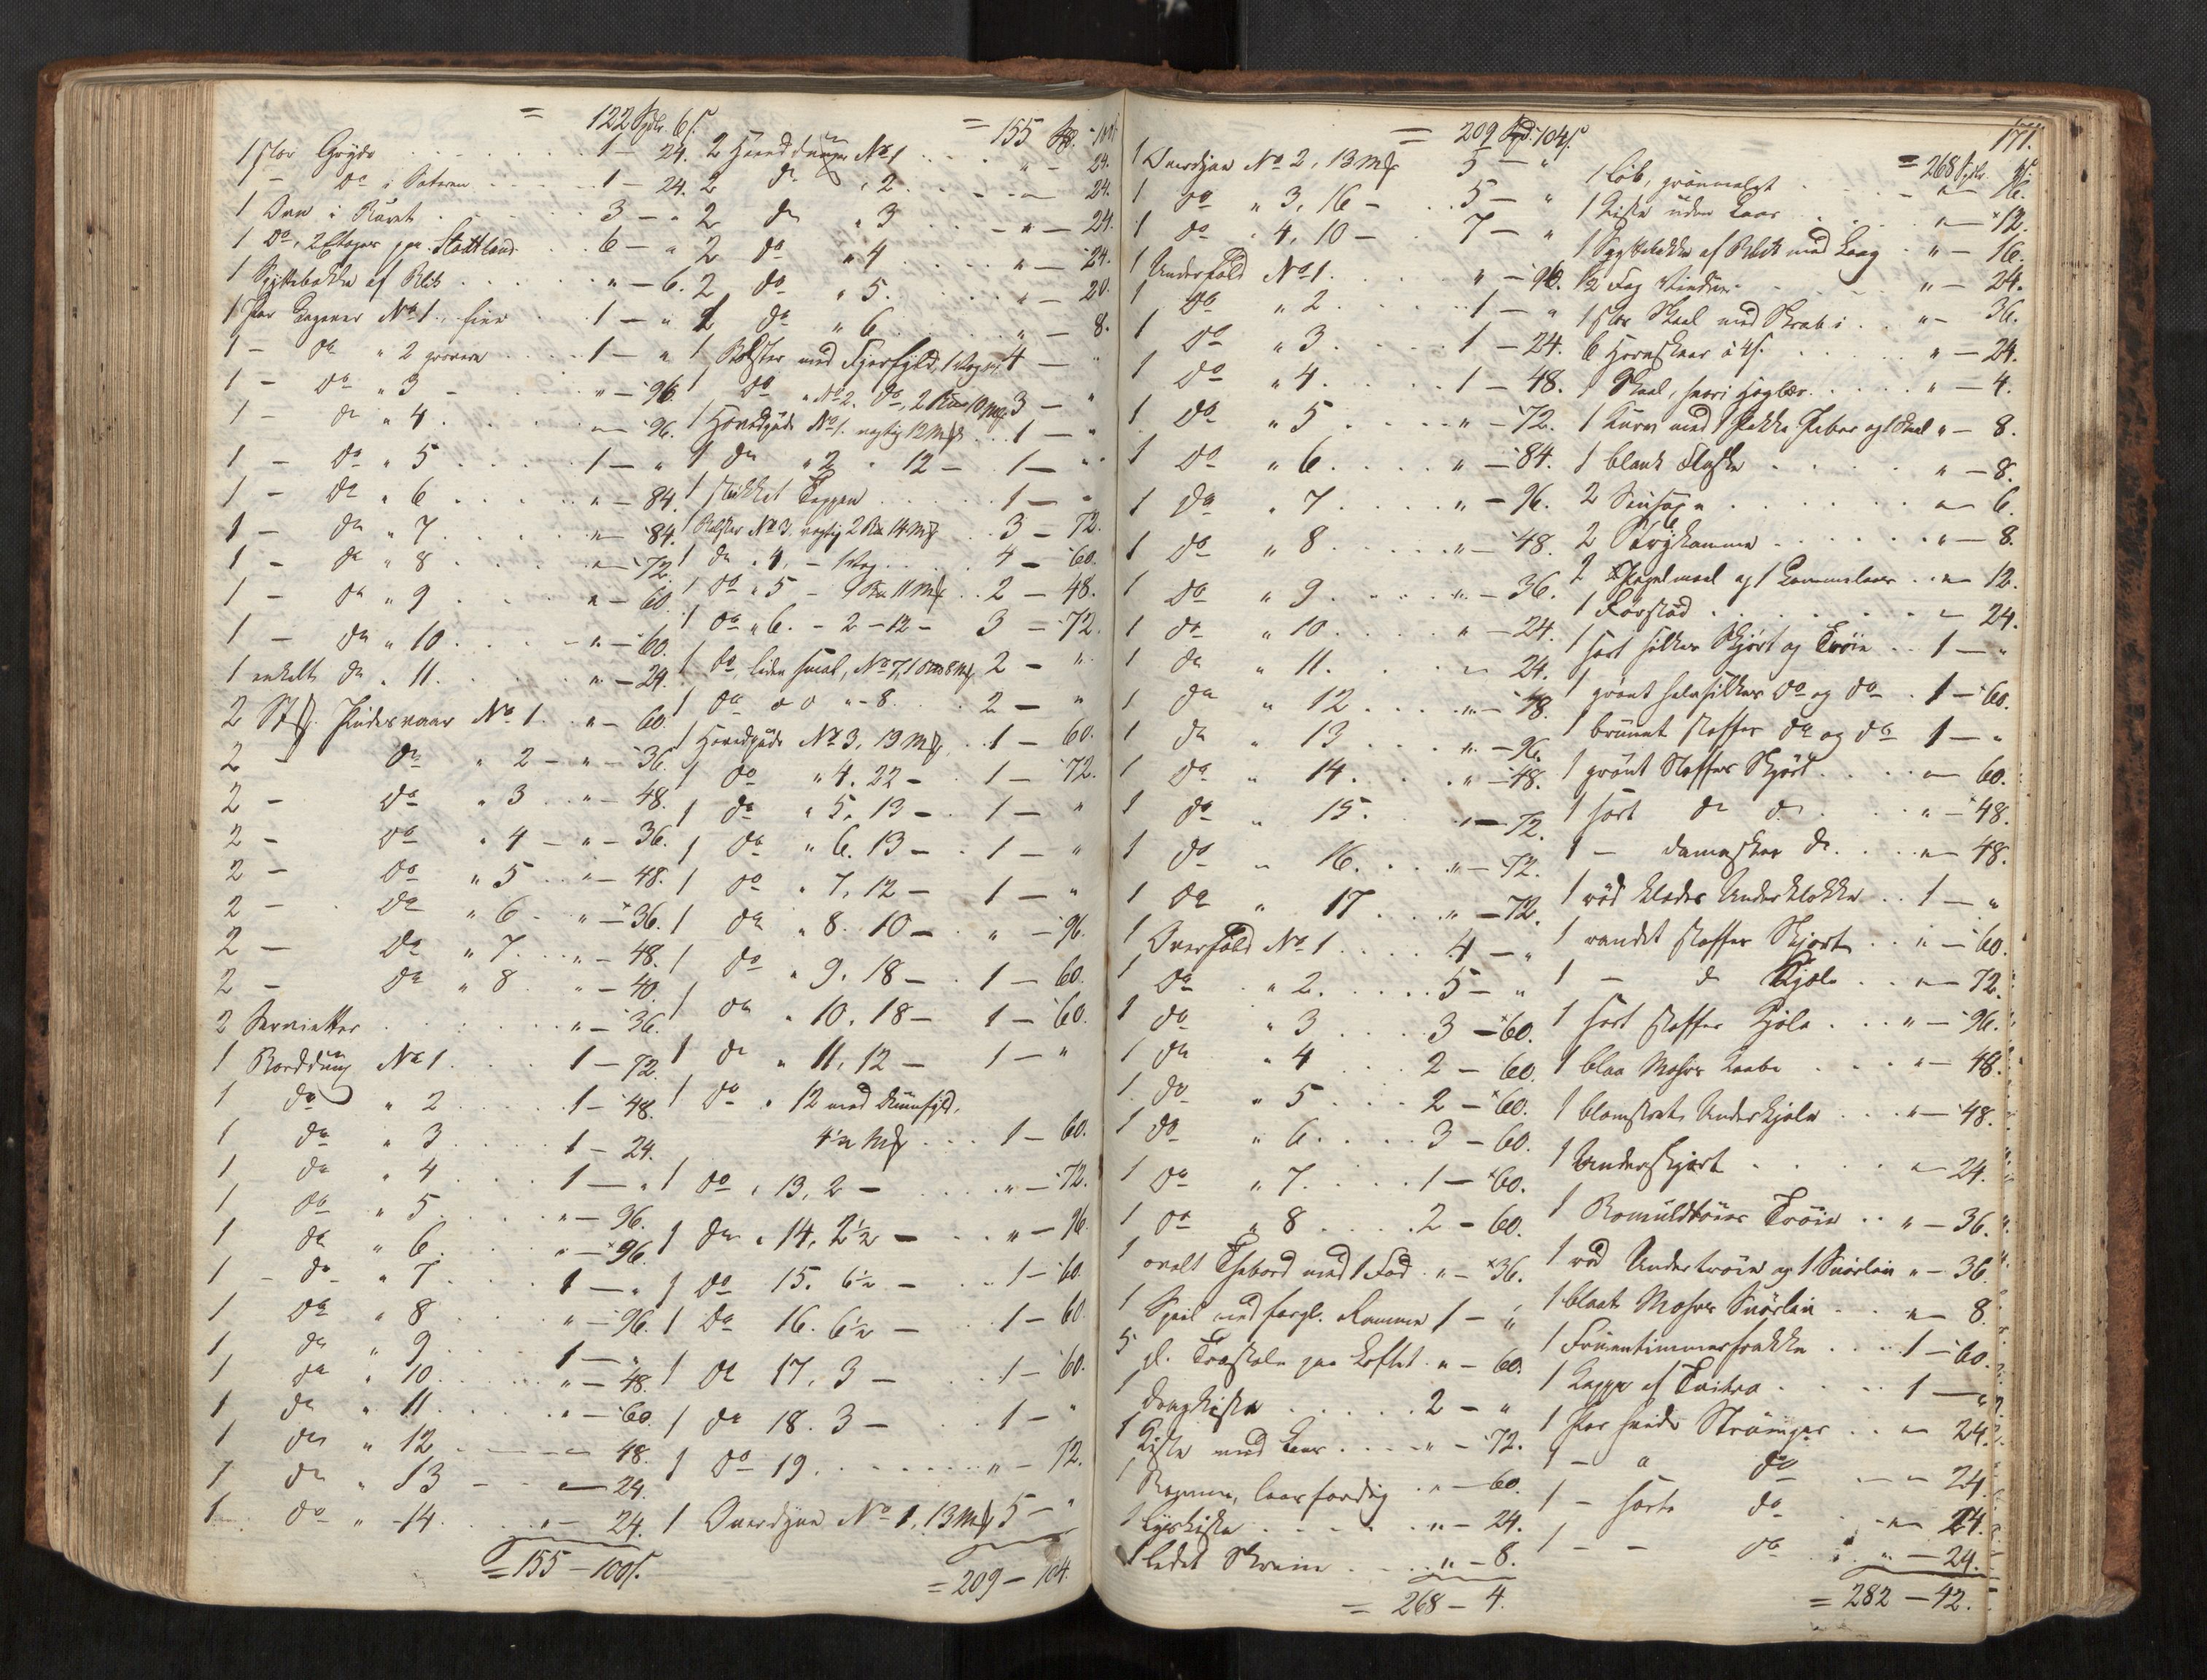 = 122 Spdr. 6 s.
1 stor Gryde . . . 1 — 24.
1 — do i Sateren . . . 1 — 24.
1 Ovn i Røret . . . 3 — "
1 Do, 2 Etager paa Stattland . . 6 — "
1 Spyttebakke af Blik . . . " — 6.
1 Par Lagener No 1. fine . . 1 — "
1 — do " 2 grovere . . . 1 — "
1 — do " 3 — . . . " — 96.
1 — do " 4 . . . " — 96.
1 — do " 5 . . . 1 — "
1 — do " 6 . . . " — 84.
1 — do " 7 . . . " — 84.
1 — do " 8 . . . " — 72.
1 — do " 9 . . . " — 60.
1 — do " 10 . . . " — 60.
1 enkelt do " 11 . . . " — 24.
2 Stk. Pudevaar No 1. . . " — 60.
2 — do " 2 — " — 36.
2 — do " 3 . . " — 48.
2 — do " 4 — " — 36.
2 — do " 5 . . " — 48.
2 — do " 6 . " — 36.
2 — do " 7 . . " — 48.
2 — do " 8 . . " — 40.
2 Servietter . . . " — 36.
1 Borddug No 1 . . . 1 — 72.
1 do " 2 . . . 1 — 48.
1 do " 3 . . . 1 — 24.
1 do " 4 . . . 1 — "
1 do " 5 . . . " — 96.
1 do " 6 . . . " — 96.
1 — do " 7 . . . 1 — "
1 do " 8 . . . " — 96.
1 do " 9 . . . 1 — "
1 do " 10 . . . " — 48.
1 do " 11 . . . " — 60.
1 do " 12 . . . " — 48.
1 do " 13 — . . " — 24.
1 do " 14 . . . " — 24.
= 155 — 100 s.
= 155 Spd. 100 s.
2 Haanddug No 1 . . . " — 24.
2 do " 2 . . . " — 24.
2 do " 3 . . . " — 24.
2 do " 4 . . . " — 24.
2 do " 5 . . . " — 20.
2 do " 6 . . . " — 8.
1 Bolster med Fjerfyld, 1 Vog 4 — "
1 do " No 2. do, 2 10 Mk 3 — "
1 Hovedpude No 1. vegtig 12 Mk . . 1 — "
1 do " 2 " 12 — 1 — "
1 stukket Teppen . . . 1 — "
Bolster No 3. vegtig 2 14 Mk . . 3 — 72.
1 do " 4, — 1 Vog . . . 4 — 60.
1 do " 5 — 11 Mk . . 2 — 48.
1 do " 6. — 2 — 12 — 3 — 72.
1 do, liden smal, No 7, 1 8 Mk 2 — "
1 do " 8 . . . 2 — "
1 Hovedpude No 3, 19 Mk . . 1 — 60.
1 do " 4. 22 — . 1 — 72.
1 do " 5. 13 — . 1 — "
1 do " 6. 13 — . 1 — "
1 do " 7. 12 — 1 — "
1 do " 8. 10 — . " — 96.
1 do " 9. 18 — . 1 — 60.
1 do " 10. 18 — 1 — 60.
1 do " 11, 12 — 1 — "
1 do " 12 med Duunfyld,
4½ Mk . . . 1 — 60.
1 do " 13, 2 — . . . " — 72.
1 do " 14, 2½ — . . " — 96.
1 do 15. 6½ — . . 1 — 60.
1 Do 16. 6½ — . . 1 — 60
1 do 17, 3 — . . 1 — 60.
1 do 18. 3 — . . 1 — "
1 do 19. . . . " — 72.
1 Overdyne No 1, 13 Mk 5 — "
= 209 — 104.
= 209 Spd. 104 s.
1 Overdyne No 2, 13 Mk 5 — "
1 do " 3, 16 — . . 5 — "
1 do " 4, 10 — . 7 — "
1 Underfæld No 1. . . " — 96.
1 do " 2 . . . 1 — "
1 do " 3 . . . 1 — 24.
1 do " 4 . . . 1 — 48.
1 do " 5 . . . " — 72.
1 do " 6 . . . " — 84.
1 do " 7 . . . " — 96.
1 do " 8 . . . " — 48.
1 do " 9 . . . " — 36.
1 do " 10 . . . " — 24.
1 do " 11 . . . " — 24.
1 do " 12 . . . " — 48.
1 do " 13 . . . " — 96.
1 do " 14 . . . " — 48.
1 do " 15 . . . " — 72.
1 do " 16 . . . " — 72.
1 do " 17 . . . " — 72.
1 Overfæld No 1 . . . 4 — "
1 do " 2 . . . 5 — "
1 do " 3 . . . 3 — 60.
1 do " 4 . . . 2 — 60.
1 do " 5 . . . 2 — 60.
1 do " 6 . . . 3 — 60.
1 do " 7 . . . 1 — 60.
1 do " 8 . . . 2 — 60.
1 ovalt Thebord med 1 Fod . " — 36.
1 Speil med forgl. Ramme 1 — "
5 gl. Træstole paa Loftet . " — 60.
1 Dragkiste . . . 2 — "
1 Kiste med Laas . . . " — 72.
1 laasfærdig . . " — 60.
1 Lyskiste . . . " — 24.
1 ledet Skriin . . . " — 8.
= 268 — 4.
171.
= 268 Spdr. 4 s.
1 Løb, grønmalet . . . " — 16.
1 Kiste uden Laas . . . " — 12.
1 Spyttebakke af Blik med Laag . " — 16.
1½ Fag Vinduer . . . " — 24.
1 stor Skaal med Skrab i . . " — 36.
6 Hornskeer à 4 s. . . . " — 24.
1 Skaal, hvori Haglær . . . " — 4.
1 Kurv med 1 Pakke Peber og 1 Skaal " — 8.
1 blank Flaske . . . " — 8.
2 . . . " — 6.
2 Strygkamme . . . " — 8.
2 og 1 . . " — 12.
1 Fodstød . . . " — 24.
1 sort silkes Skjørt og Trøie . . 1 — "
1 grønt halvsilkes do og do . 1 — 60.
1 bruunt stoffes do og do 1 — "
1 grønt Stoffes Skjørt . . . " — 60.
1 sort do do . . . " — 48.
1 — damaskes do . . . " — 48.
1 rød klædes Underklokke . . 1 — "
1 randet stoffes Skjørt . . " — 60.
1 — do Kjole . . " — 72.
1 sort stoffes Kjole . . . " — 96.
1 blaa Mohrs Kaabe . . . " — 48.
1 blomstret Underkjole . . . " — 48.
1 Underskjørt . . . " — 24.
1 Bomuldtøies Trøie . . " — 36.
1 rød Undertrøie og 1 Snørliv " — 36.
1 blaat Mohrs Snørliv . . . " — 8.
1 Fruentimmerfrakke . . . 1 — 60.
1 Kappe af . . . 1 — "
1 Par hvide Strømper . . " — 24.
1 — " do . . " — 24.
1 — sorte do . . " — 24.
1 — — do . . " — 24.
= 282 — 42.